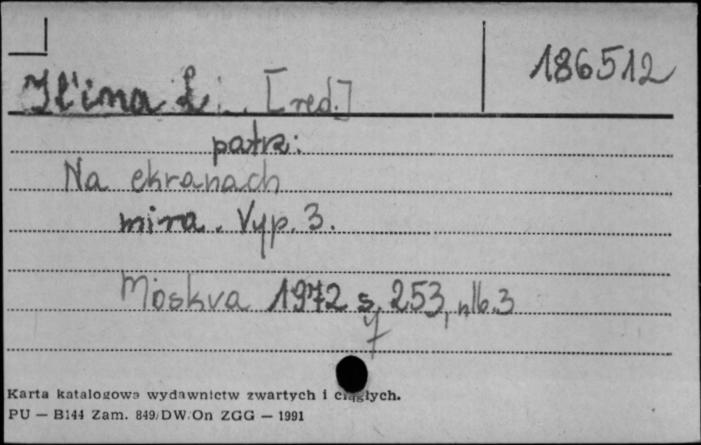 186512
Il'ina L. [red.]
patrz:
Na ekranach
mira. Vyp. 3.
Moskva 1972 s. 253, nlb. 3
Karta katalogowa wydawnictw zwartych i ciągłych.
PU — B144 Zam. 849/DW/On ZGG — 1991